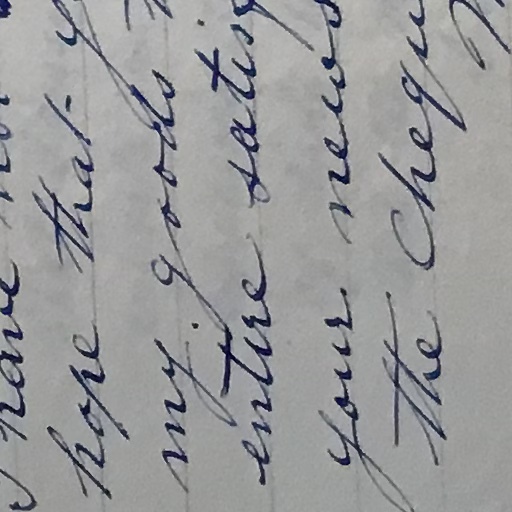 I have not
hope that y
my goods t
entire satisf
your news
the Chequ